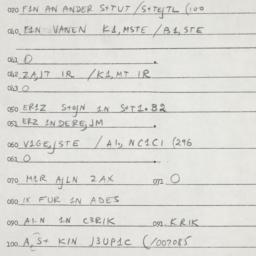 020 FIN AN ANDER S+TUT / S+TEJTL (100
040 FIN VANEN K1,MSTE / A1,STE
041 O
042 ZAJT IR / K1,MT IR
043 O
050 ER1Z S+ON 1N S+T1.82
051 ERZ INDEREJM
060 V1GEJSTE / A1, NC1C1 (296
061 O
070 MIR AJLN ZAX 071 O
080 IX FUR 1N ADES
090 A1.N 1N C3RIK 091 KRIK
100 A, S+ KIN J3UP1C (/007085